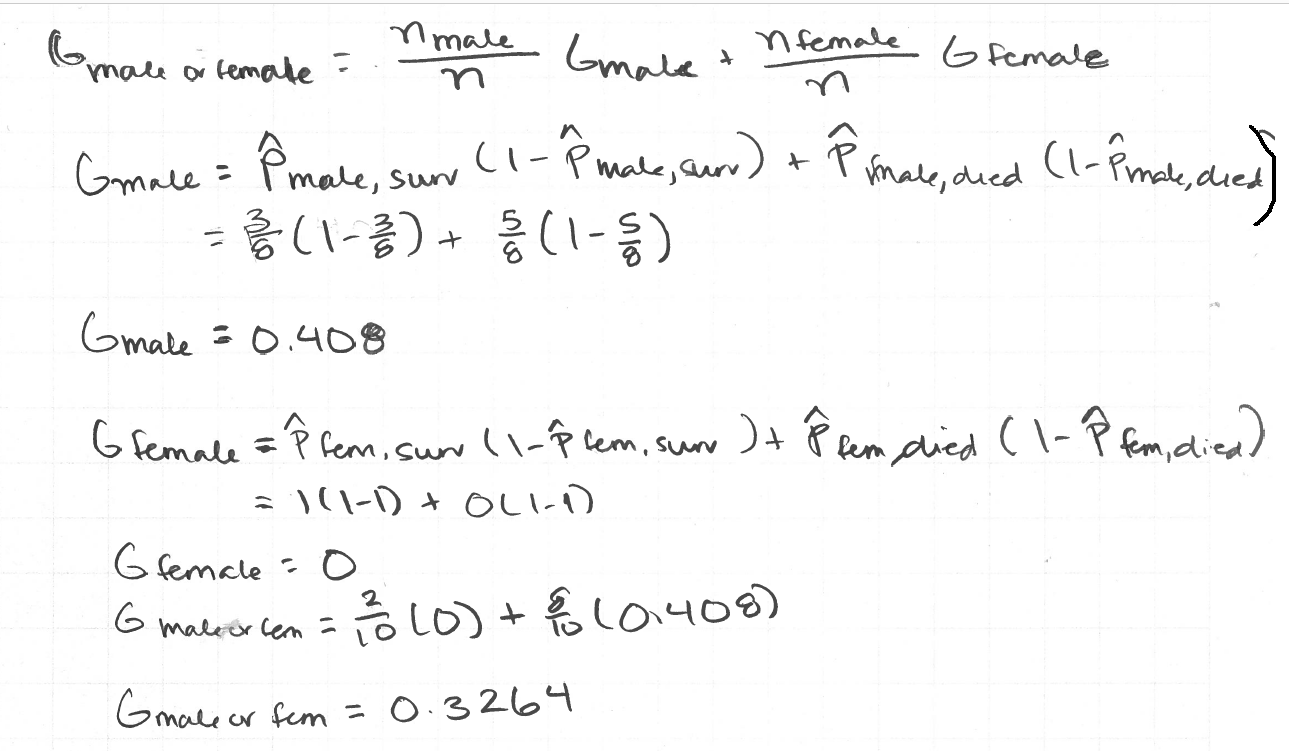 G male or female = n male / n G male + n female / n G female
G male = P̂ male, surv (1 - P̂ male, surv) + P̂ male, died (1 - P̂ male, died)
= 3/8 (1 - 3/8) + 5/8 (1 - 5/8)
G male = 0.408
G female = P̂ fem, surv (1 - P̂ fem, surv) + P̂ fem, died (1 - P̂ fem, died)
= 1(1-1) + 0(1-1)
G female = 0
G male or fem = 2/10 (0) + 8/10 (0.408)
G male or fem = 0.3264